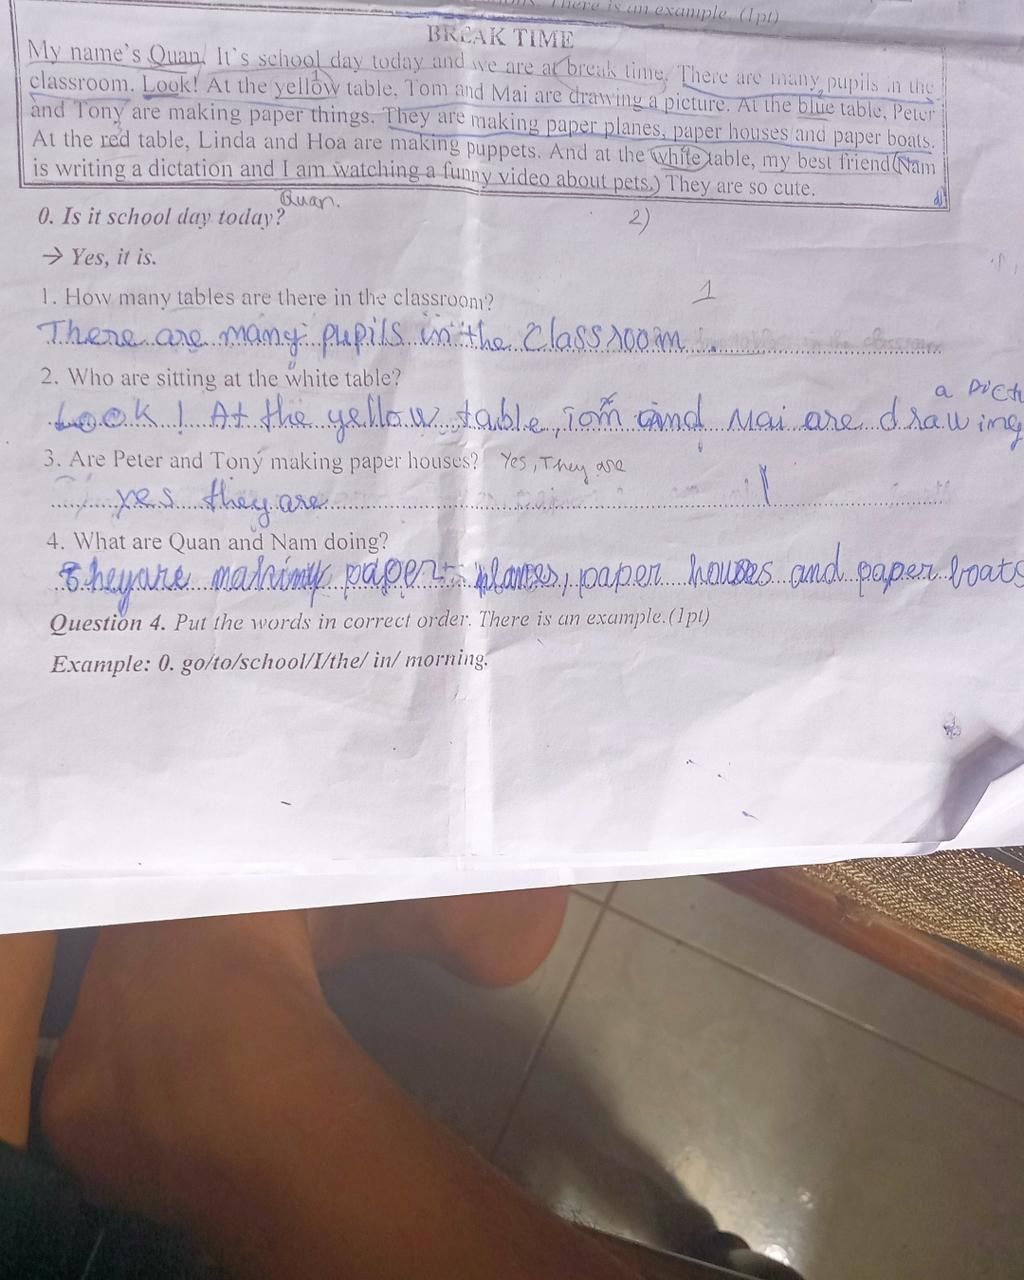 There is an example. (1pt)
BREAK TIME
My name's Quan. It's school day today and we are at break time. There are many pupils in the
classroom. Look! At the yellow table, Tom and Mai are drawing a picture. At the blue table, Peter
and Tony are making paper things. They are making paper planes, paper houses and paper boats.
At the red table, Linda and Hoa are making puppets. And at the white table, my best friend Nam
is writing a dictation and I am watching a funny video about pets. They are so cute.
Quan.
0. Is it school day today?
2)
→ Yes, it is.
1. How many tables are there in the classroom?
1
There are many pupils in the classroom
2. Who are sitting at the white table?
a
Look! At the yellow table, Tom and Mai are drawing
3. Are Peter and Tony making paper houses? Yes, They are
yes they are
4. What are Quan and Nam doing?
paper planes, paper houses and paper boats
Question 4. Put the words in correct order. There is an example.(1pt)
Example: 0. go/to/school/I/the/ in/ morning.